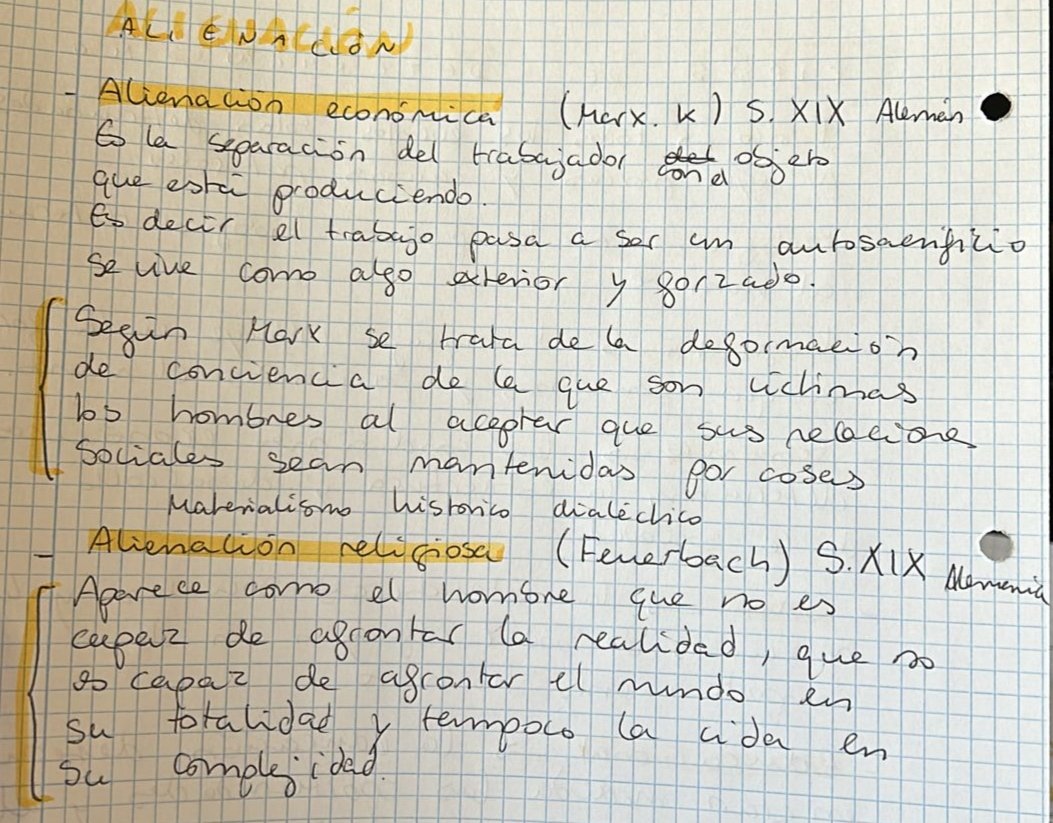 ALIENACIÓN
- Alienación económica (Marx. K) S. XIX Alemán
Es la separación del trabajador del con el objeto
que está produciendo.
Es decir el trabajo pasa a ser un autosacrificio
se vive como algo exterior y forzado.
Según Marx se trata de la deformación
de conciencia de la que son víctimas
los hombres al aceptar que sus relaciones
sociales sean mantenidas por cosas
Materialismo historico dialéctico
- Alienación religiosa (Feuerbach) S. XIX Alemania
Aparece como el hombre que no es
capaz de afrontar la realidad, que no
es capaz de afrontar el mundo en
su totalidad y tampoco la vida en
su complejidad.